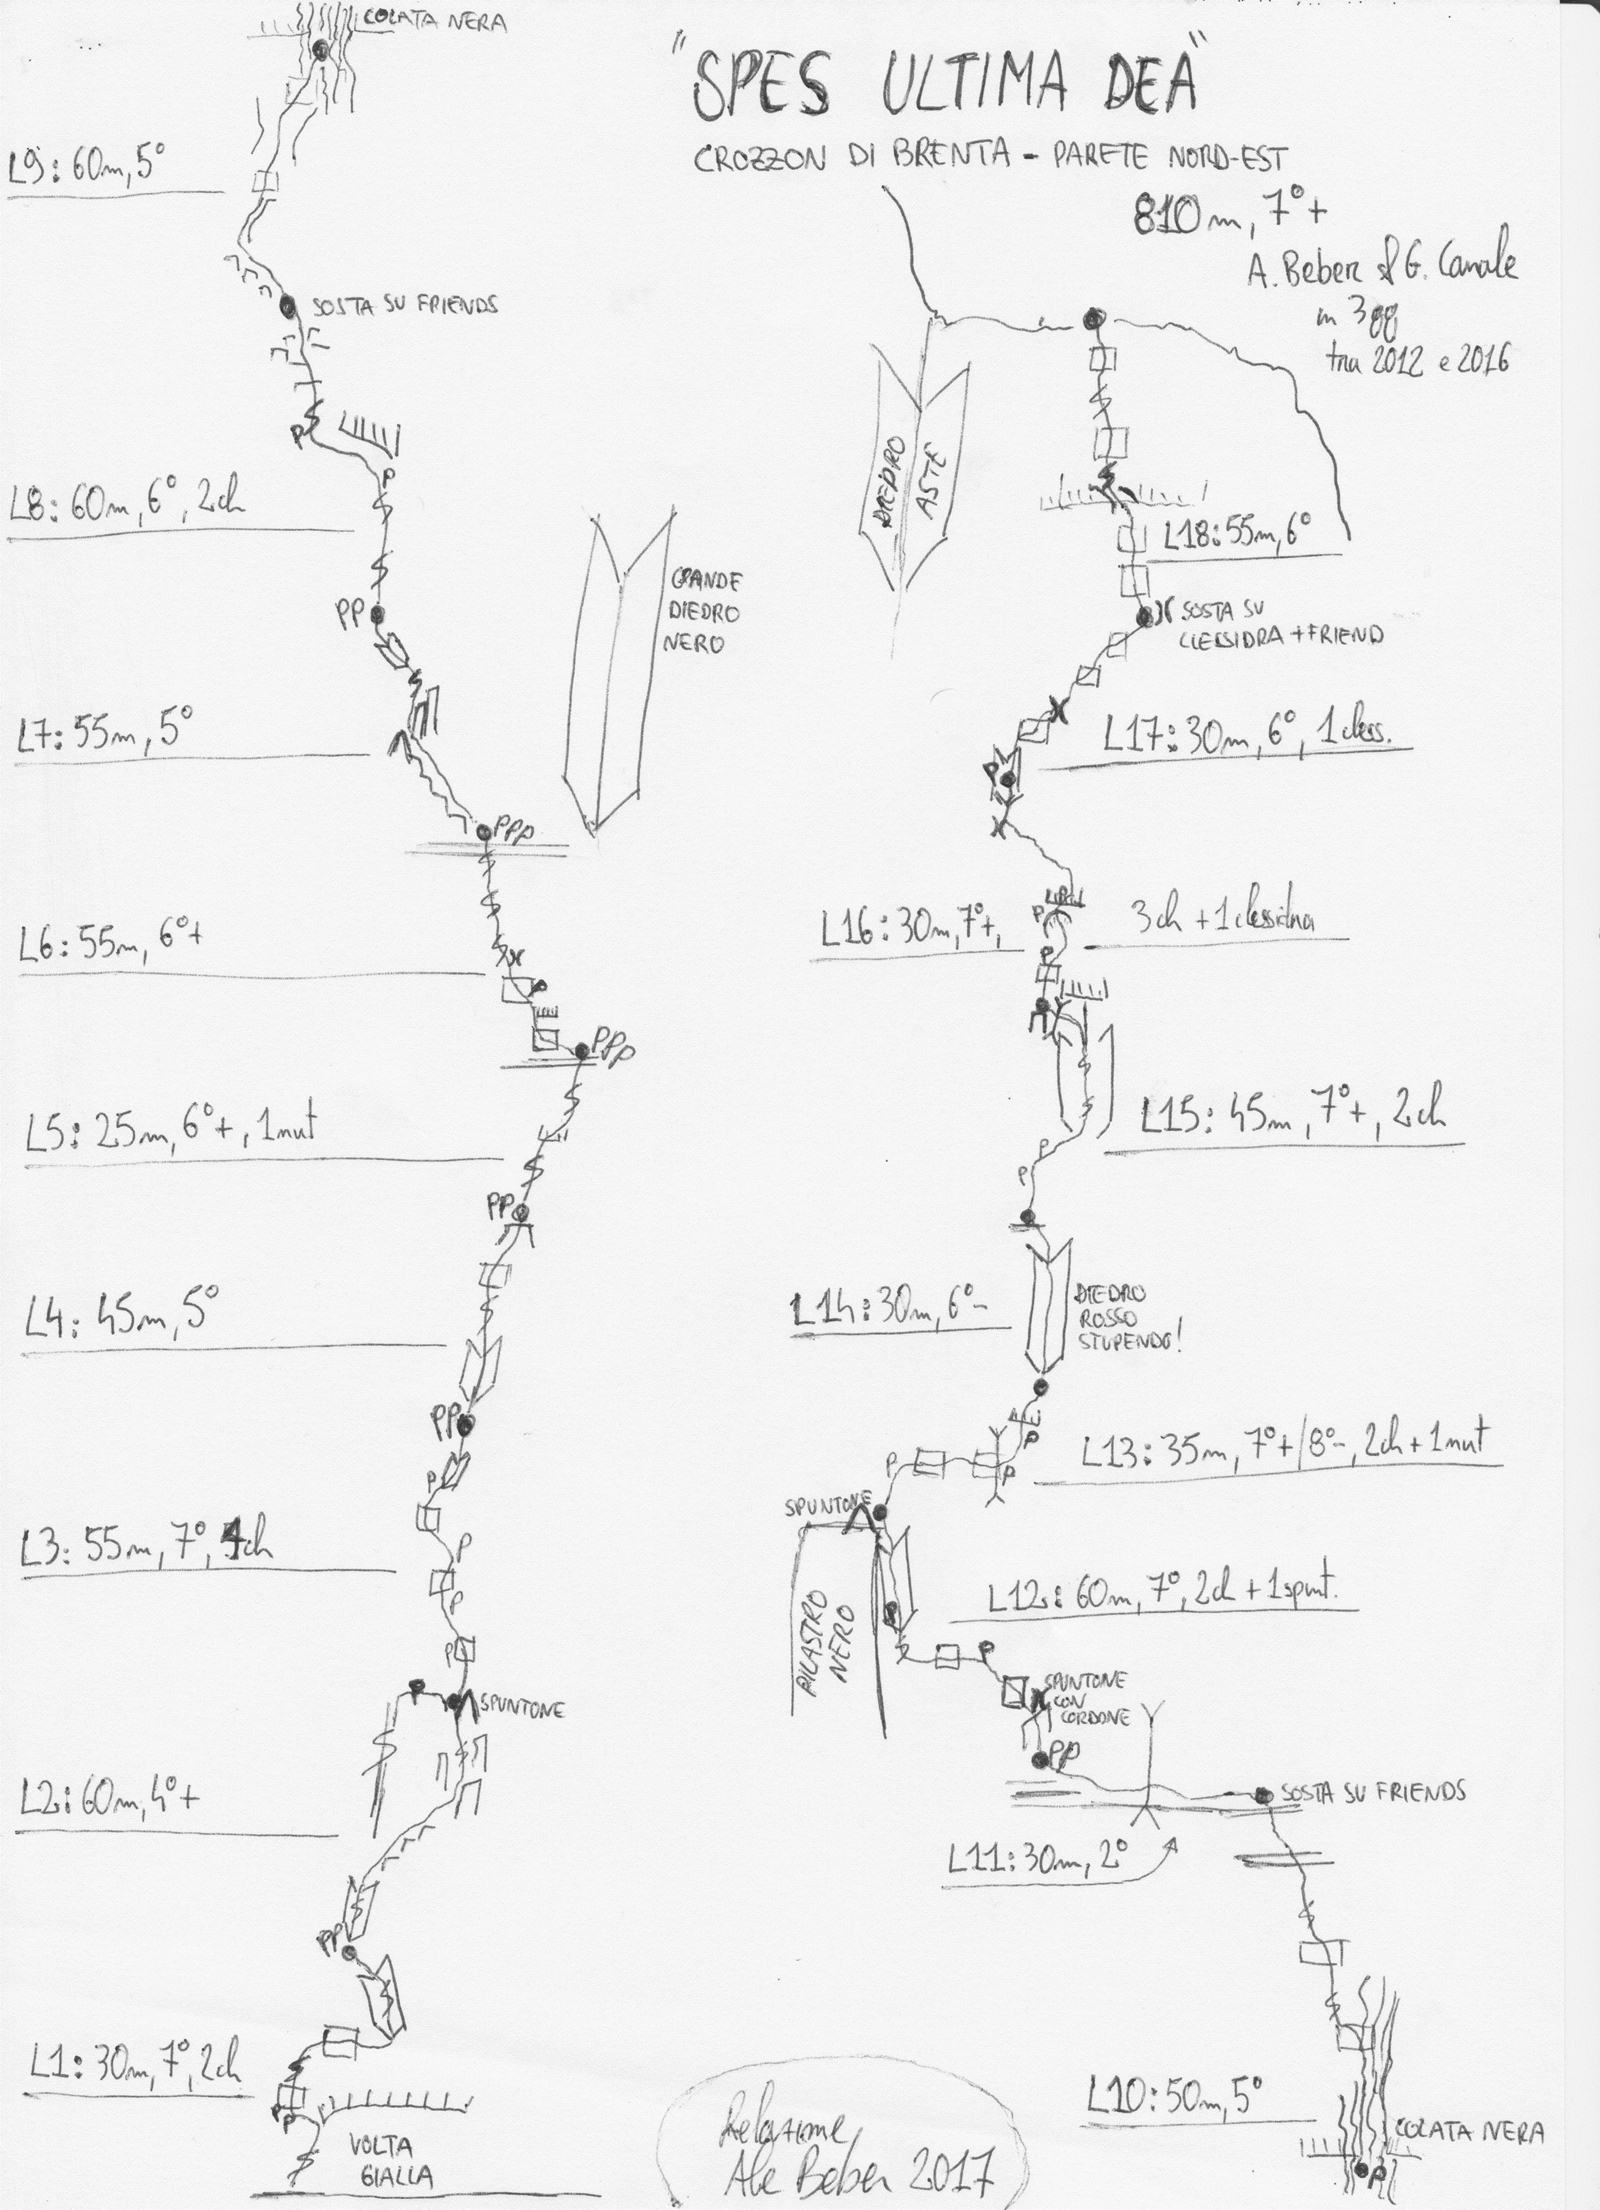 "SPES ULTIMA DEA"
CROZZON DI BRENTA - PARETE NORD-EST
810m, 7°+
A. Beber & G. Canale
in 3gg
tra 2012 e 2016
COLATA NERA
L9: 60m, 5°
SOSTA SU FRIENDS
P
P
L8: 60m, 6°, 2ch
PP
GRANDE
DIEDRO
NERO
L7: 55m, 5°
PPP
L6: 55m, 6°+
P
PPP
L5: 25m, 6°+, 1nut
PP
L4: 45m, 5°
PP
P
L3: 55m, 7°, 4ch
P
P
P
P
SPUNTONE
L2: 60m, 4°+
PP
L1: 30m, 7°, 2ch
PP
VOLTA
GIALLA
DIEDRO
ASTE
L18: 55m, 6°
SOSTA SU
CLESSIDRA + FRIEND
L17: 30m, 6°, 1cless.
P
L16: 30m, 7°+, 3ch + 1clessidra
P
P
L15: 45m, 7°+, 2ch
P
P
L14: 30m, 6°-
DIEDRO
ROSSO
STUPENDO!
L13: 35m, 7°+/8°-, 2ch + 1nut
P
P
P
SPUNTONE
L12: 60m, 7°, 2ch + 1spunt.
PILASTRO
NERO
P
P
SPUNTONE
CON
CORDONE
PP
SOSTA SU FRIENDS
L11: 30m, 2°
L10: 50m, 5°
COLATA NERA
P
Relazione
Ale Beber 2017